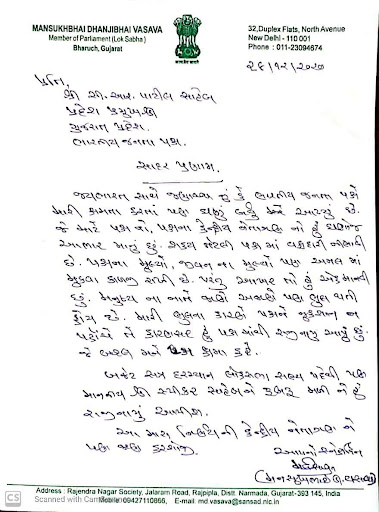 MANSUKHBHAI DHANJIBHAI VASAVA
Member of Parliament (Lok Sabha)
Bharuch, Gujarat
32,Duplex Flats, North Avenue
New Delhi - 110 001
Phone : 011-23094674
પ્રતિ,
શ્રી સી. આર. પાટીલ સાહેબ
પ્રદેશ પ્રમુખશ્રી
ગુજરાત પ્રદેશ.
ભારતીય જનતા પક્ષ.
સાદર પ્રણામ.
જયભારત સાથે જણાવવાનું કે ભારતીય જનતા પક્ષે
મારી ક્ષમતા કરતાં પણ ઘણું બધું મને આપ્યું છે.
જે માટે પક્ષ નો, પક્ષના કેન્દ્રીય નેતાગણ નો હું ઘણોજ
આભાર માનું છું. શક્ય તેટલી પક્ષ માં વફાદારી નિભાવી
છે. પક્ષના મુલ્યો, જીવન ના મુલ્યો પણ અમલ માં
મુકવા કાળજી રાખી છે. પરંતુ આખરે તો હું એક માનવી
છું. મનુષ્ય ના નાતે જાણે અજાણે પણ ભુલ થતી
હોય છે. મારી ભુલના કારણે પક્ષને નુકશાન ના
પહોંચે તે કારણસર હું પક્ષમાંથી રાજીનામું આપું છું.
જે બદલ મને પક્ષ ક્ષમા કરે.
બજેટ સત્ર દરમ્યાન લોકસભા સભ્ય પદેથી પણ
માનનીય શ્રી સ્પીકર સાહેબને રૂબરૂ મળી ને હું
રાજીનામું આપીશ.
આ મારા નિર્ણયની કેન્દ્રીય નેતાગણ ને
પણ જાણ કરશોજી.
આપનો
(મનસુખભાઈ વસાવા)
Address : Rajendra Nagar Society, Jalaram Road, Rajpipla, Distt. Narmada, Gujarat-393 145, India
Mobile : 09427110866, E-mail: md.vasava@sansad.nic.in
CS Scanned with CamScanner